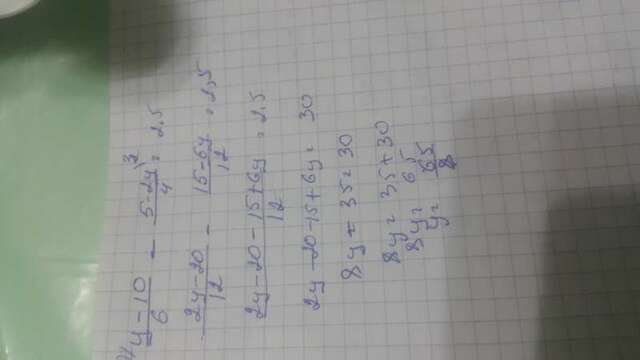 y-10/6 - 5-2y/4 \3 = 2,5
2y-20/12 - 15-6y/12 = 2,5
2y-20-15+6y/12 = 2,5
2y-20-15+6y= 30
8y-35=30
8y= 35+30
8y= 65
y= 65/8